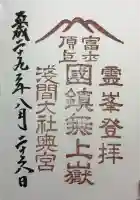 霊峯登拝
富士
頂上
國鎮無上嶽
浅間大社奥宮
平成二十九年八月二十六日